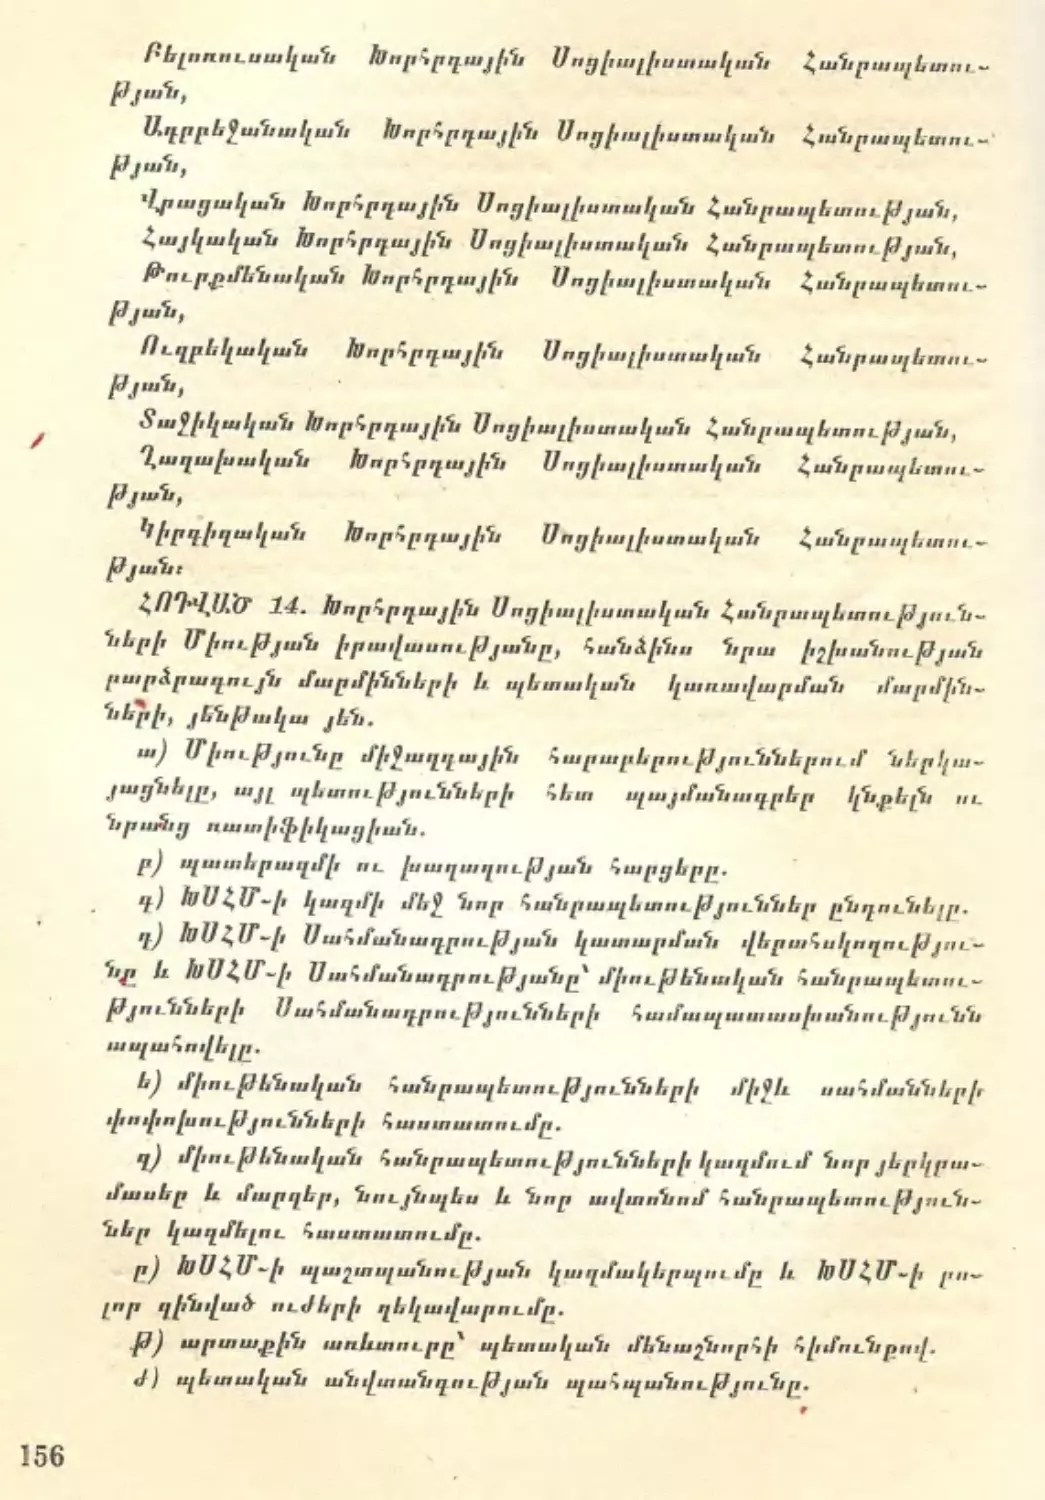 Բելոռուսական Խորհրդային Սոցիալիստական Հանրապետու-
թյան,
Ադրբեջանական Խորհրդային Սոցիալիստական Հանրապետու-
թյան,
Վրացական Խորհրդային Սոցիալիստական Հանրապետության,
Հայկական Խորհրդային Սոցիալիստական Հանրապետության,
Թուրքմենական Խորհրդային Սոցիալիստական Հանրապետու-
թյան,
Ուզբեկական Խորհրդային Սոցիալիստական Հանրապետու-
թյան,
Տաջիկական Խորհրդային Սոցիալիստական Հանրապետության,
Ղազախական Խորհրդային Սոցիալիստական Հանրապետու-
թյան,
Կիրգիզական Խորհրդային Սոցիալիստական Հանրապետու-
թյան:
ՀՈԴՎԱԾ 14. Խորհրդային Սոցիալիստական Հանրապետություն-
ների Միության իրավասությանը, հանձինս նրա իշխանության
բարձրագույն մարմինների և պետական կառավարման մարմին-
ների, յենթակա յեն.
ա) Միությունը միջազգային հարաբերություններում ներկա-
յացնելը, այլ պետությունների հետ պայմանագրեր կնքելն ու
նրանց ռատիֆիկացիան.
բ) պատերազմի ու խաղաղության հարցերը.
գ) ԽՍՀՄ-ի կազմի մեջ նոր հանրապետություններ ընդունելը.
դ) ԽՍՀՄ-ի Սահմանադրության կատարման վերահսկողությու-
նը և ԽՍՀՄ-ի Սահմանադրությանը՝ միութենական հանրապետու-
թյունների Սահմանադրությունների համապատասխանությունն
ապահովելը.
ե) միութենական հանրապետությունների միջև սահմանների
փոփոխությունների հաստատումը.
զ) միութենական հանրապետությունների կազմում նոր յերկրա-
մասեր և մարզեր, նույնպես և նոր ավտոնոմ հանրապետություն-
ներ կազմելու հաստատումը.
ը) ԽՍՀՄ-ի պաշտպանության կազմակերպումը և ԽՍՀՄ-ի բո-
լոր զինված ուժերի ղեկավարումը.
թ) արտաքին առևտուրը՝ պետական մենաշնորհի հիմունքով.
ժ) պետական անվտանգության պահպանությունը.
156